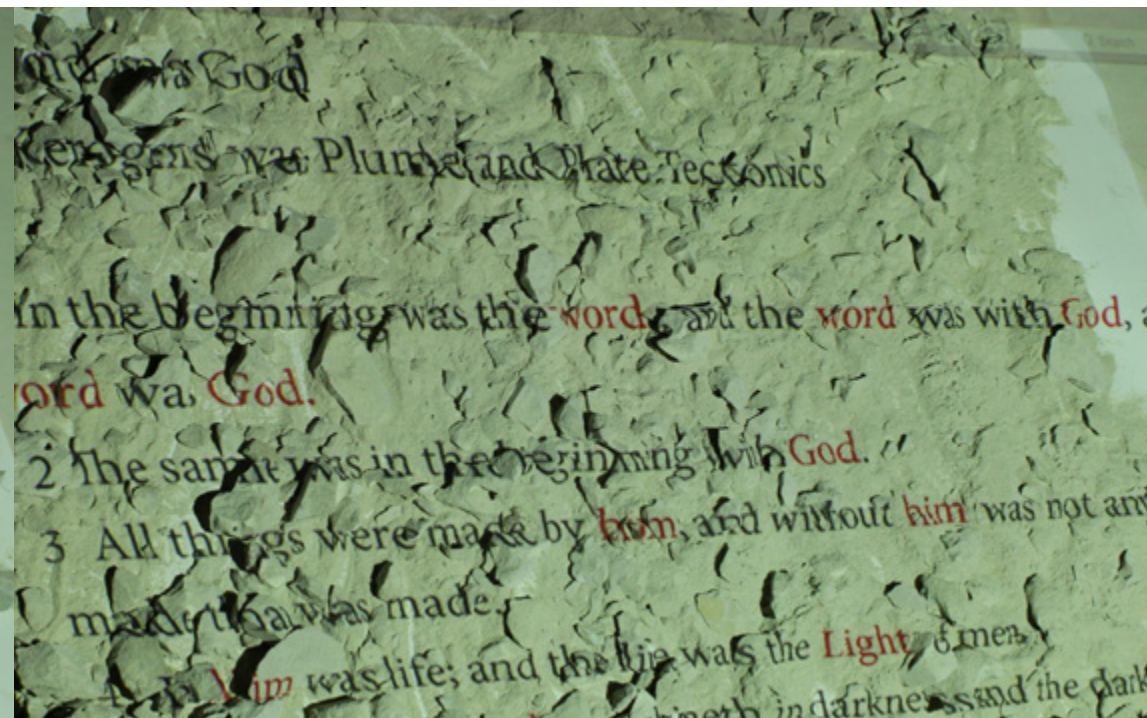 was God
was Plume and Plate Tectonics
In the beginning was the word, and the word was with God,
word was God.
2 The same was in the beginning with God.
3 All things were made by him, and without him was not an
made that was made.
4 In him was life; and the life was the Light of men.
in darkness and the dark